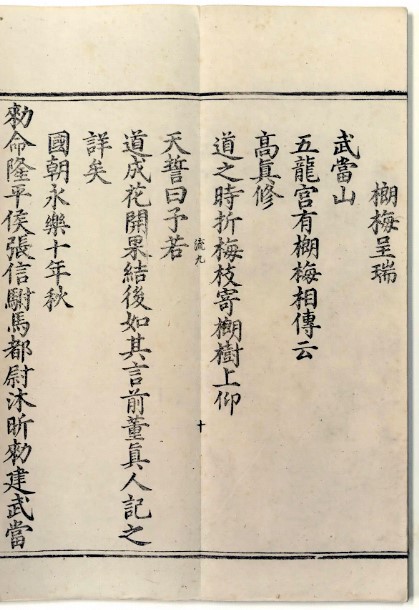 榔梅呈瑞
武當山
五龍宮有榔梅相傳云
高真修
道之時折梅枝寄榔樹上仰
流九
十
天誓曰予若
道成花開果結後如其言前董真人記之
詳矣
國朝永樂十年秋
勑命隆平侯張信駙馬都尉沐昕勑建武當